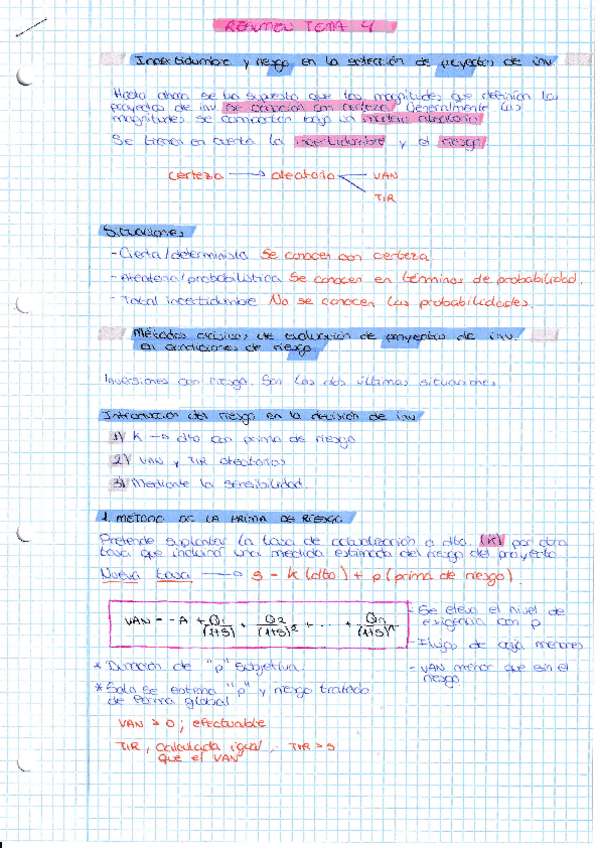 RESUMEN TEMA 4
Incertidumbre y riesgo en la selección de proyectos de inv
Hasta ahora se ha supuesto que las magnitudes que definían los
proyectos de inv se conocían con certeza. Generalmente las
magnitudes se comportan bajo un modelo aleatorio.
Se tienen en cuenta la incertidumbre y el riesgo.
certeza → aleatorio VAN
TIR
Situaciones
- Cierta/determinista Se conocen con certeza.
- Aleatoria/probabilística Se conocen en términos de probabilidad.
- Total incertidumbre No se conocen las probabilidades.
Métodos clásicos de evaluación de proyectos de inv.
en condiciones de riesgo
Inversiones con riesgo. Son las dos últimas situaciones.
Introducción del riesgo en la decisión de inv
1) K → dto con prima de riesgo
2) VAN y TIR aleatorios
3) Mediante la sensibilidad.
1. METODO DE LA PRIMA DE RIESGO
Pretende suplantar la tasa de actualización o dto. (K) por otra
tasa que incluirá una medida estimada del riesgo del proyecto
Nueva tasa → s = K (dto) + p (prima de riesgo).
VAN = -A + Q1/(1+s) + Q2/(1+s)² + ... + Qn/(1+s)ⁿ
- Se eleva el nivel de
exigencia con p
- Flujos de caja menores
- VAN menor que sin el
riesgo
* Duración de "p" subjetiva.
* Solo se estima "p" y riesgo tratado
de forma global
VAN > 0; efectuable
TIR, calculada igual TIR > s
que el VAN